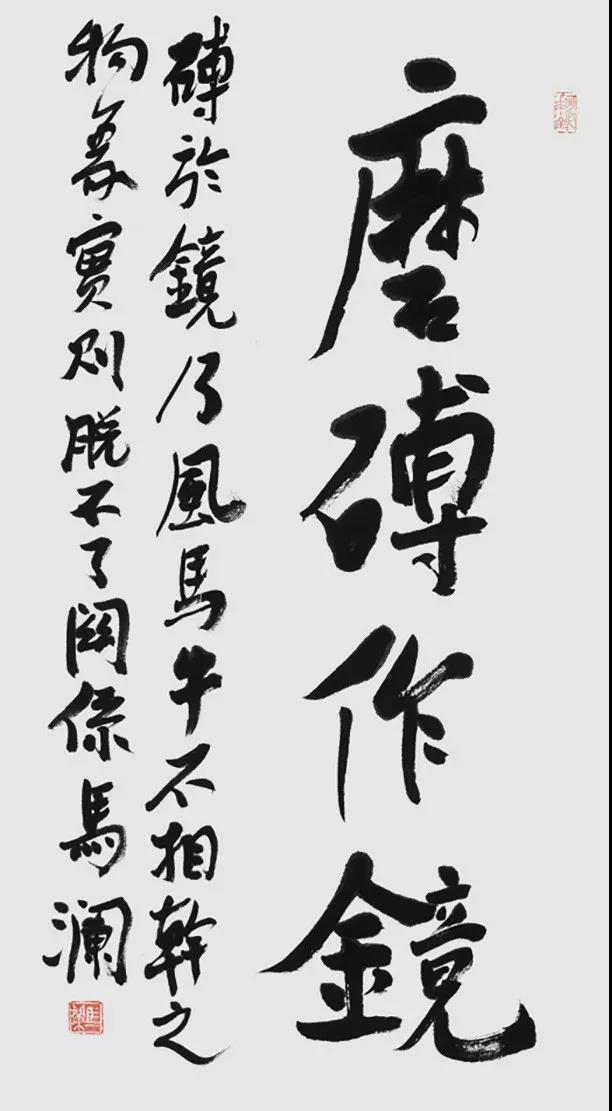 磨磚作鏡
磚於鏡乃風馬牛不相幹之
物象實則脫不了關係馬澜